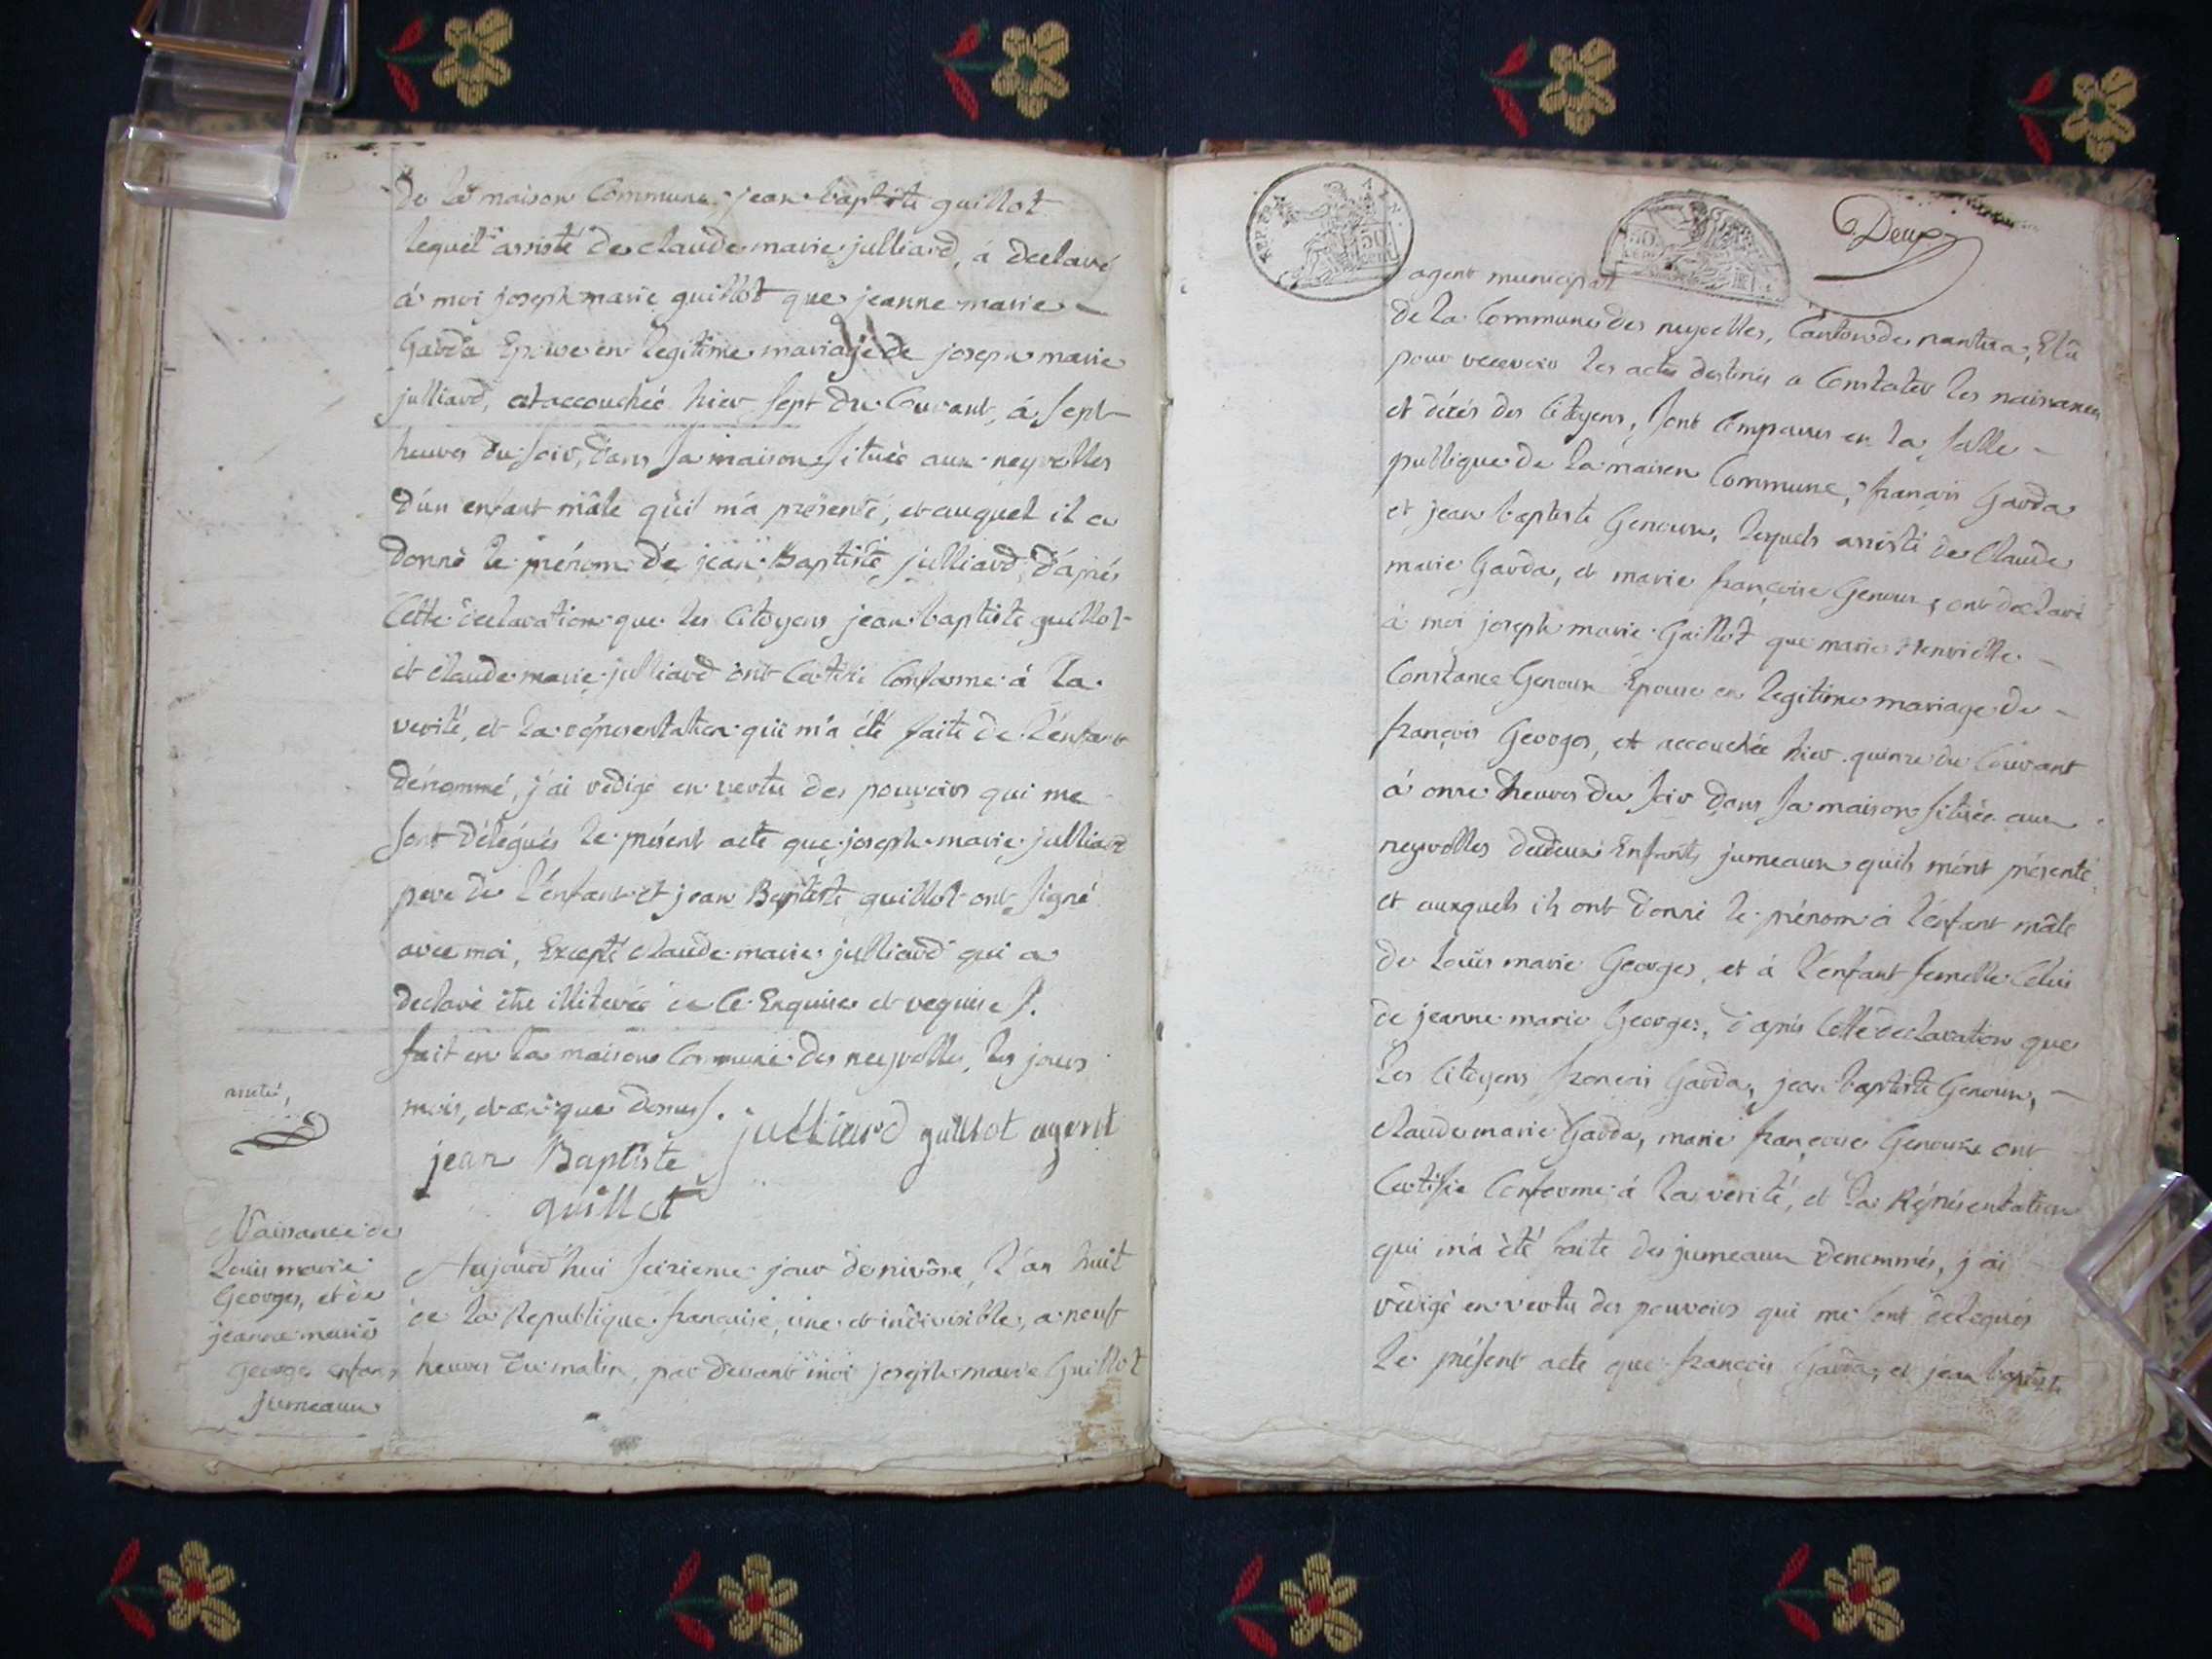 de la maison Commune, jean baptiste guillot
lequel assisté de claude marie julliard, á declaré
á moi joseph marie guillot que jeanne marie
Gavda Epouse en legitime mariage de joseph marie
julliard, est accouchée hier sept du Courant, á sept
heures du soir, dans sa maison située aux neyrolles
d'un enfant mâle qu'il m'a présenté, et auquel il a
donné le prénom de jean Baptiste julliard, d'áprés
Cette declaration que les Citoyens jean baptiste guillot
et claude marie julliard ont Certifié Conforme á la
verité, et la représentation qui m'a été faite de l'énfant
dénommé, j'ai redigé en vertu des pouvoirs qui me
sont délegués le présent acte que joseph marie julliard
pere de l'enfant et jean Baptiste guillot ont signé
avec moi, Excepté claude marie julliard qui a
declaré être illiterée de Ce Enquise et requise ∫.
fait en la maison Commune des neyrolles, les jours
mois, et an que dessus ∫.
julliard guillot agent
jean Baptiste
guillot
Naissance de
Louis marie
Georges, et de
jeanne marie
George enfans
jumeaux
Aujourd'hui seizieme jour de nivôse, l'an huit
de la Republique française, une et indivisible, a neuf
heures du matin, par devant moi joseph marie Guillot
REP. FRA.
50
CENT.
50
Deux
agent municipal
de la Commune des neyrolles, Canton de nantua, Elû
pour recevoir les actes destinés a Constater les naissances
et décés des Citoyens, sont Comparus en la salle
publique de la maison Commune, françois Gavda
et jean baptiste Genoux, lesquels assisté de Claude
marie Gavda, et marie françoise Genoux, ont declaré
á moi joseph marie Guillot que marie Henriette
Constance Genoux Epouse en legitime mariage de
françois Georges, est accouchée hier quinze du Courant
á onze heures du soir dans sa maison située aux
neyrolles de deux Enfants jumeaux quils m'ont présenté,
et auxquels ils ont donné le prénom á l'énfant mâle
de Louis marie Georges, et á l'enfant femelle Celui
de jeanne marie Georges, d'aprés Cette declaration que
les Citoyens françois Gavda, jean baptiste Genoux,
claude marie Gavda, marie françoise Genoux ont
Certifié Conforme á la verité, et la Réprésentation
qui m'a été faite des jumeaux denommés, j'ai
rédigé en vertu des pouvoirs qui me sont délegués
le présent acte que françois Gavda, et jean baptiste